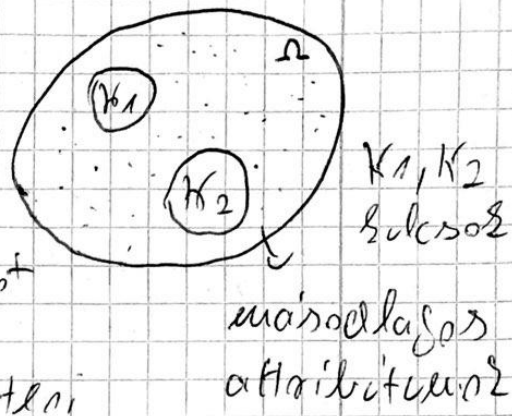 Ω
K1
K2
K1, K2
kulcsok
másodlagos
attribútumok